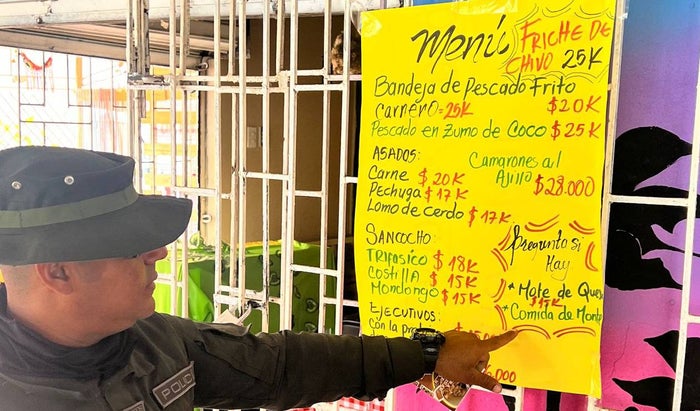 Menú
FRICHE DE
CHIVO 25K
Bandeja de Pescado Frito
$20K
CARNERO = 25K
Pescado en Zumo de Coco $25K
ASADOS:
Carne $20K
Pechuga $17K
Lomo de Cerdo $17K
Camarones al
Ajillo $28.000
SANCOCHO:
TRIFASICO $18K
COSTILLA $15K
Mondongo $15K
Pregunta si
Hay
*Mote de Ques
$17K
*Comida de Mont
EJECUTIVOS:
con la
POLIC